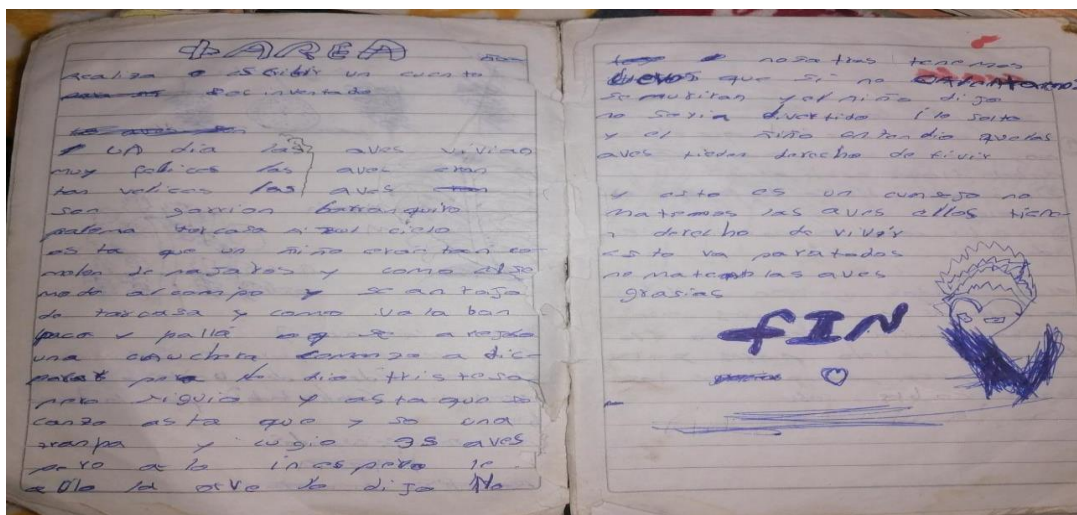 tAREA
Realiza o escribir un cuento
se inventado
UN dia las aves vivian
muy felices las aves eran
tan velices las aves
son gorrion barranquiro
paloma torcasa si sul cielo
as ta que un niño eran tan co
melon de pajaros y como el so
mado al campo y se an toja
de torcasa y como vola ban
paca y palla se a rejado
una cauchera comenzo a dis
parar pero le dio tris tesa
pero siguio y as ta que se
canzo as ta que y so una
tranpa y cugio 95 aves
pero a lo in es pero le
a blo la ave le dijo No
nosa tras tenemos
huevos que si no
se muriran y el niño dijo
no seria divertido i lo solto
y el niño entendio que las
aves tieden derecho de vivir
y esto es un cunsejo no
matemos las aves ellos tiene
n derecho de vivir
es to va para todos
no maten las aves
grasias
fIN